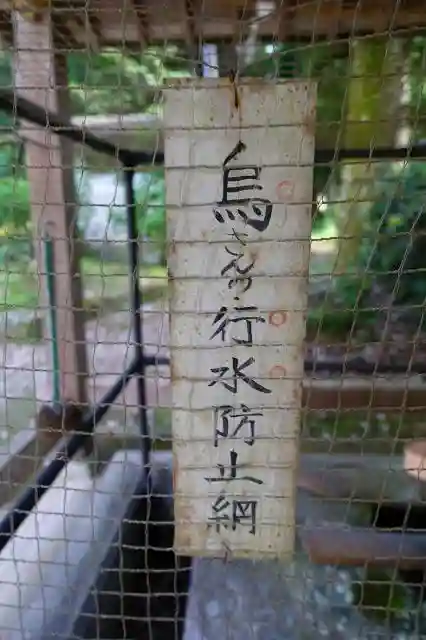 烏さんの行水防止網